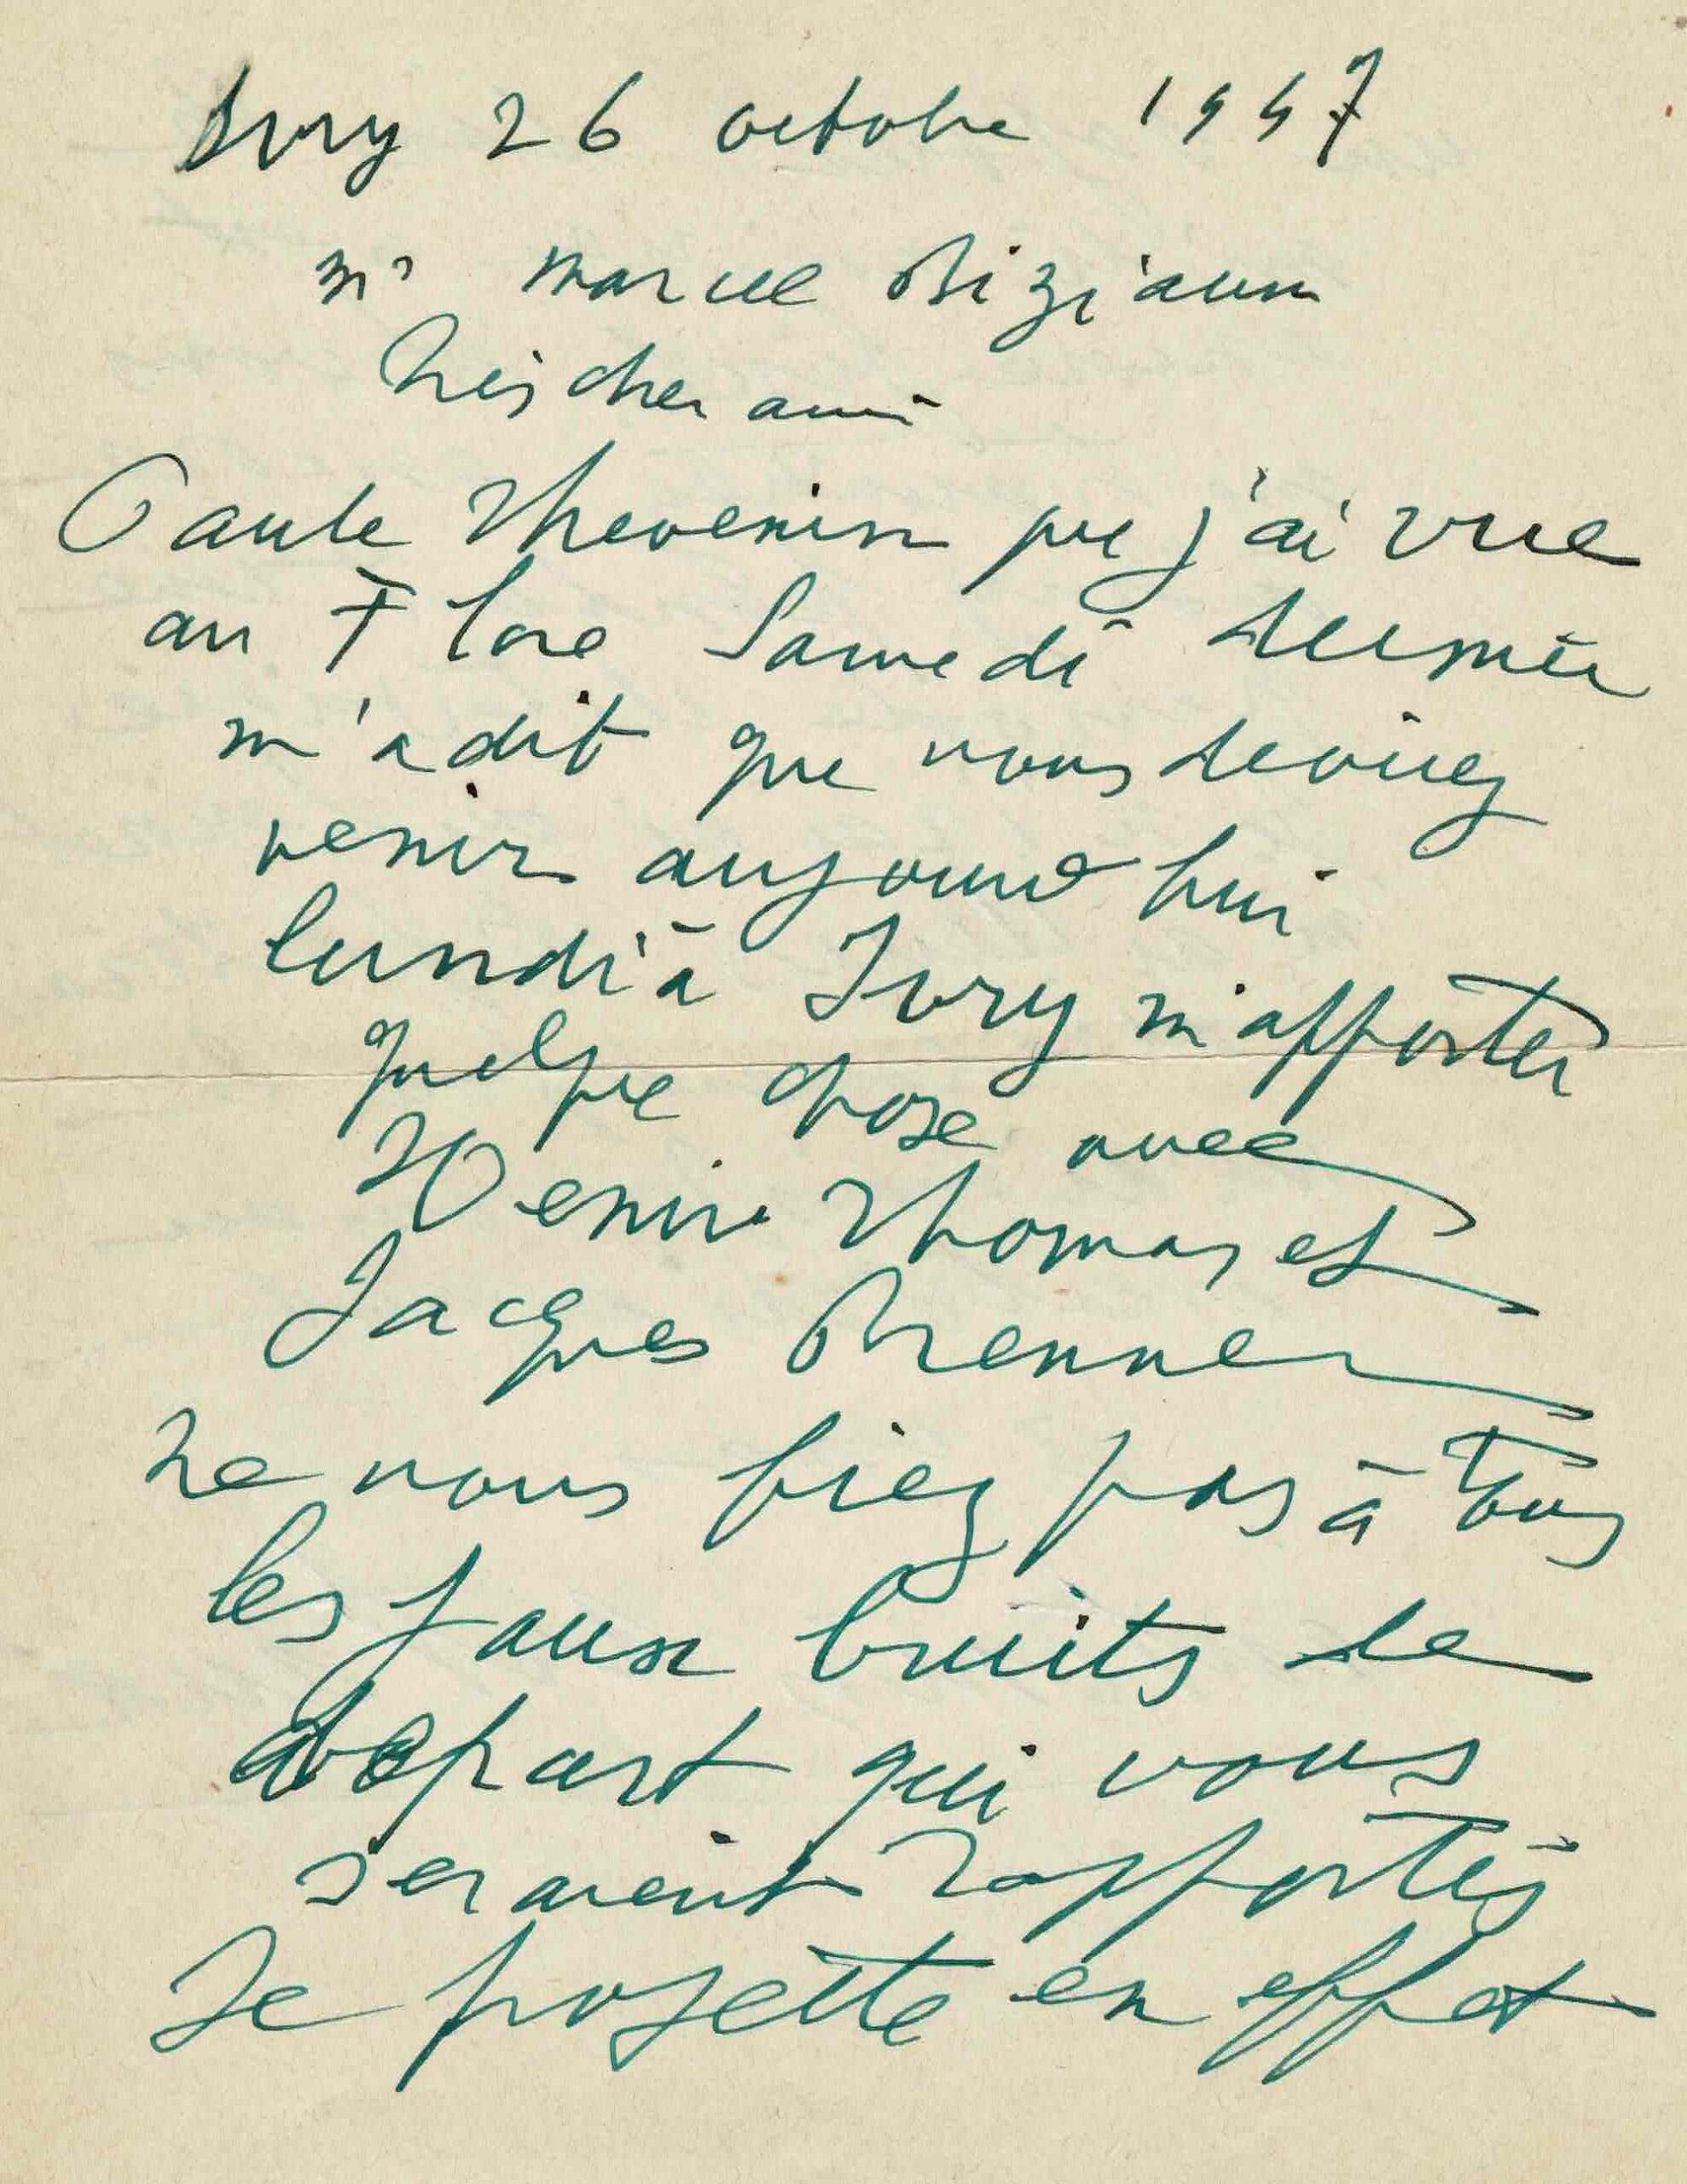 Ivry 26 octobre 1947
Mr Marcel Biziaux
Très cher ami
Paule Thevenin que j'ai vue
au Flore Samedi dernier
m'a dit que vous deviez
venir aujourd hui
lundi à Ivry m'apporter
quelque chose avec
Henri Thomas et
Jacques Brenner
ne vous fiez pas à tous
les faux bruits de
depart qui vous
seraient rapportés
Je projette en effet